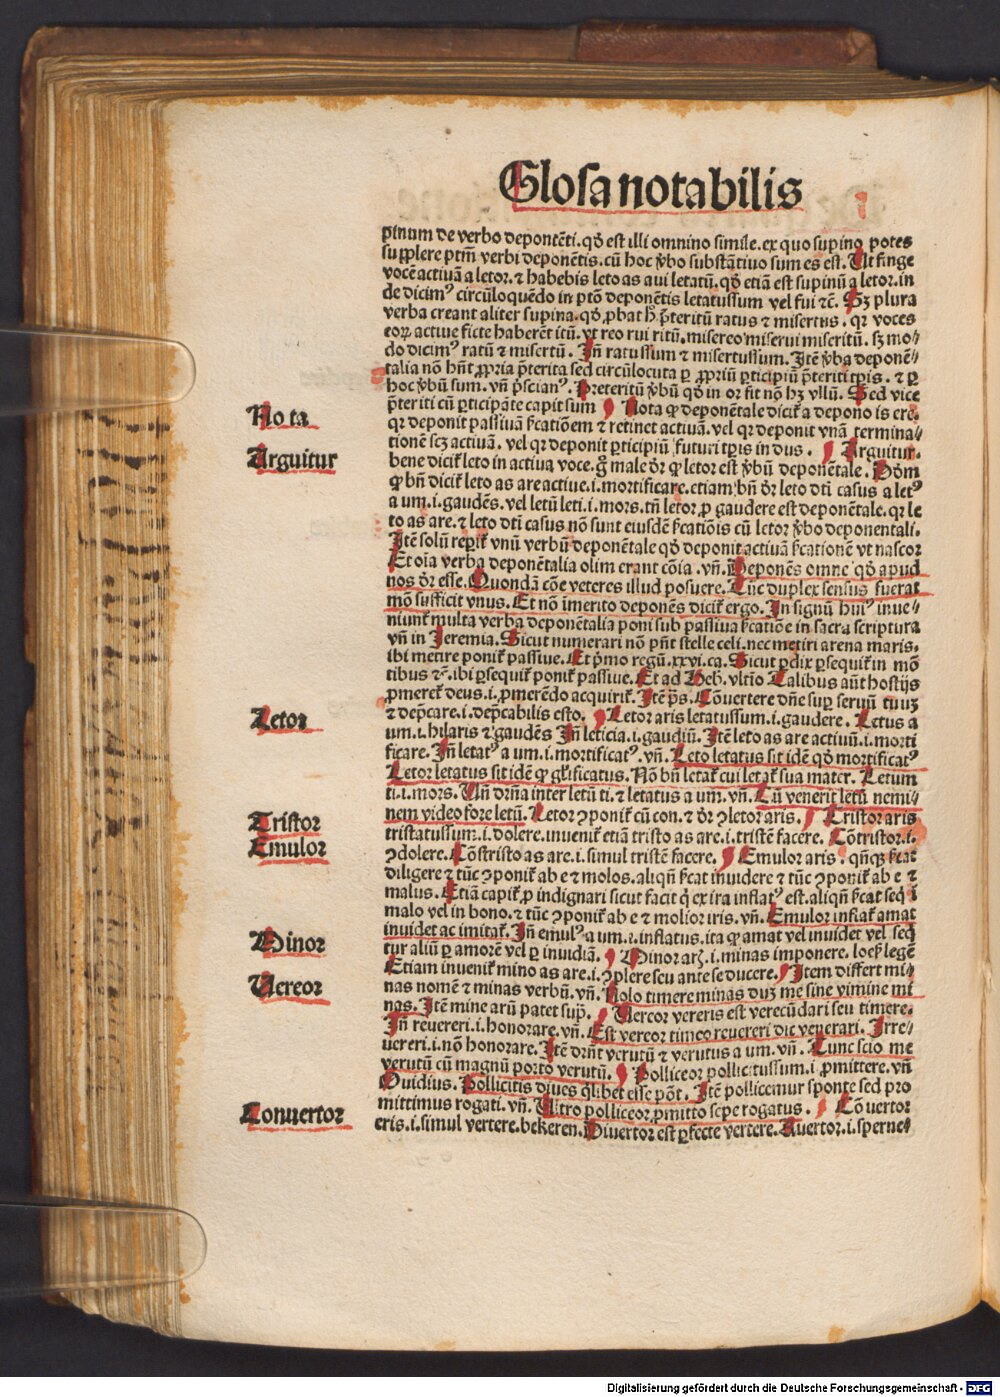 Glosa notabilis
pinum de verbo deponēti. qḋ est illi omnino simile. ex quo supino potes
supplere ptm̄ verbi deponētis. cū hoc v̓bo substātiuo sum es est. Ut finge
vocē actiuā a letor. ⁊ habebis leto as aui letatū. qḋ etiā est supinū a letor. in
de dicimꝰ circūloquēdo in ptō deponētis letatussum vel fui ⁊c̄. Sꝫ plura
verba creant aliter supina. qḋ ꝓbat h̓ p̄teritū ratus ⁊ misertus. qꝛ voces
eoꝝ actiue ficte haberēt itū. vt reo rui ritū. misereo miserui miseritū. sꝫ mo⸗
do dicimꝰ ratū ⁊ misertū. Jn̄ ratussum ⁊ misertussum. Jtē v̓ba deponē⸗
talia nō hn̄t ꝓpria p̄terita sed circūlocuta ꝑ ꝓpriū ꝑticipiū p̄teriti tp̄is. ⁊ ꝑ
hoc v̓bū sum. vn̄ p̓scianꝰ. Preteritū v̓bū qḋ in or fit nō hꝫ vllū. Sed vice
p̄teriti cū ꝑticipāte capit sum Nota ꝙ deponētale dicit̄ a depono is ere.
Nota
qꝛ deponit passiuā s̄catiōem ⁊ retinet actiuā. vel qꝛ deponit vnā termina⸗
tionē scꝫ actiuā. vel qꝛ deponit ꝑticipiū futuri tp̄is in dus. Arguitur.
Arguitur
bene dicit̄ leto in actiua voce. g̊ male dr̄ ꝙ letor est v̓bū deponētale. Dōm
ꝙ bn̄ dicit̄ leto as are actiue. i. mortificare. etiam bn̄ dr̄ leto dti casus a letꝰ
a um. i. gaudēs. vel letū leti. i. mors. tn̄ letor ꝓ gaudere est deponētale. qꝛ le
to as are. ⁊ leto dti casus nō sunt eiusdē s̄catiōis cū letor v̓bo deponentali.
Jtē solū reꝑit̄ vnū verbū deponētale qḋ deponit actiuā s̄cationē vt nascor
Et oīa verba deponētalia olim erant cōia. vn̄. Deponēs omne qḋ apud
nos dr̄ esse. Quondā cōe veteres illud posuere. Tūc duplex sensus fuerat
mō sufficit vnus. Et nō imerito deponēs dicit̄ ergo. Jn signū huiꝰ inue⸗
niunt̄ multa verba deponētalia poni sub passiua s̄catiōe in sacra scriptura
vn̄ in Jeremia. Sicut numerari nō pn̄t stelle celi. nec metiri arena maris.
ibi metire ponit̄ passiue. Et p̓mo regū. xxvi. ca. Sicut ꝑdix ꝑsequit̄ in mō
tibus ⁊c̄. ibi ꝑsequit̄ ponit̄ passiue. Et ad Heb̓. vltīo Talibus aūt hostijs
ꝓmeret̄ deus. i. ꝓmerēdo acquirit̄. Jtē p̄s. Cōuertere dn̄e sup̄ seruū tuuꝫ
⁊ dep̄care. i. dep̄cabilis esto. Letor aris letatussum. i. gaudere. Letus a
Letor
um. i. hilaris ⁊ gaudēs Jn̄ leticia. i. gaudiū. Jtē leto as are actiuū. i. morti
ficare. Jn̄ letatꝰ a um. i. mortificatꝰ. vn̄. Leto letatus sit idē qḋ mortificatꝰ
Letor letatus sit idē ꝙ gl̄ificatus. Nō bn̄ letat̄ cui letat̄ sua mater. Letum
ti. i. mors. Un̄ drn̄a inter letū ti. ⁊ letatus a um. vn̄. Cū venerit letū nemi⸗
nem video fore letū. Letor ꝯponit̄ cū con. ⁊ dr̄ ꝯletor aris. Tristor aris
Tristor
tristatussum. i. dolere. inuenit̄ etiā tristo as are. i. tristē facere. Cōtristor. i.
Emulor
ꝯdolere. Cōstristo as are. i. simul tristē facere. Emulor aris. qn̄qꝫ s̄cat
diligere ⁊ tūc ꝯponit̄ ab e ⁊ molos. aliqn̄ s̄cat inuidere ⁊ tūc ꝯponit̄ ab e ⁊
malus. Etiā capit̄ ꝓ indignari sicut facit q̇ ex ira inflatꝰ est. aliqn̄ s̄cat seq̇ ī
malo vel in bono. ⁊ tūc ꝯponit̄ ab e ⁊ molior iris. vn̄. Emulor inflat̄ amat
inuidet ac imitat̄. Jn̄ emulꝰ a um. i. inflatus. ita ꝙ amat vel inuidet vel seq̇
tur aliū ꝑ amorē vel ꝑ inuidiā. Minor arꝭ. i. minas imponere. loco legē
Minor
Etiam inuenit̄ mino as are. i. ꝯplere seu ante se ducere. Jtem differt mi⸗
nas nomē ⁊ minas verbū. vn̄. Nolo timere minas duꝫ me sine vimine mi
Uereor
nas. Jtē mine arū patet sup̄. Uereor vereris est verecūdari seu timere.
Jn̄ reuereri. i. honorare. vn̄. Est vereor timeo reuereri dic venerari. Jrre⸗
uereri. i. nō honorare. Jtē drn̄t verutū ⁊ verutus a um. vn̄. Tunc scio me
verutū cū magnū porto verutū. Polliceor pollicitussum. i. ꝓmittere. vn̄
Ouidius. Pollicitis diues q̇libet esse pōt. Jtē pollicemur sponte sed pro
mittimus rogati. vn̄. Ultro polliceor ꝓmitto sepe rogatus. Cōuertor
Conuertor
eris. i. simul vertere. bekeren. Diuertor est ꝑfecte vertere. Auertor. i. sperne⸗
Digitalisierung gefördert durch die Deutsche Forschungsgemeinschaft - DFG